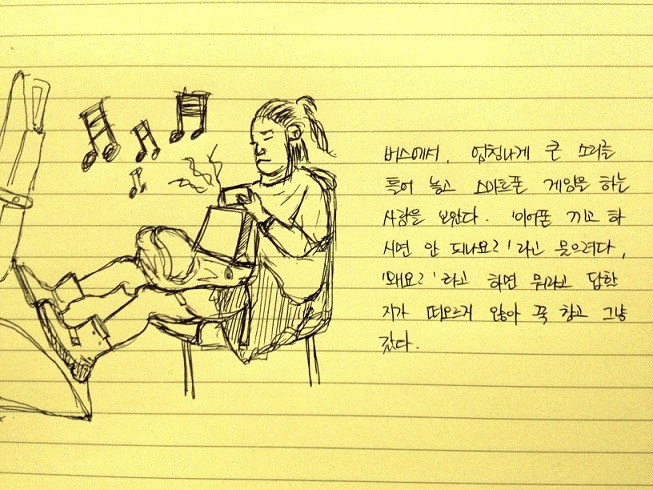 버스에서, 엄청나게 큰 소리를
틀어 놓고 스마트폰 게임을 하는
사람을 보았다. '이어폰 끼고 하
시면 안 되나요?'라고 물으려다,
'왜요?'라고 하면 뭐라고 답할
지가 떠오르지 않아 꾹 참고 그냥
갔다.